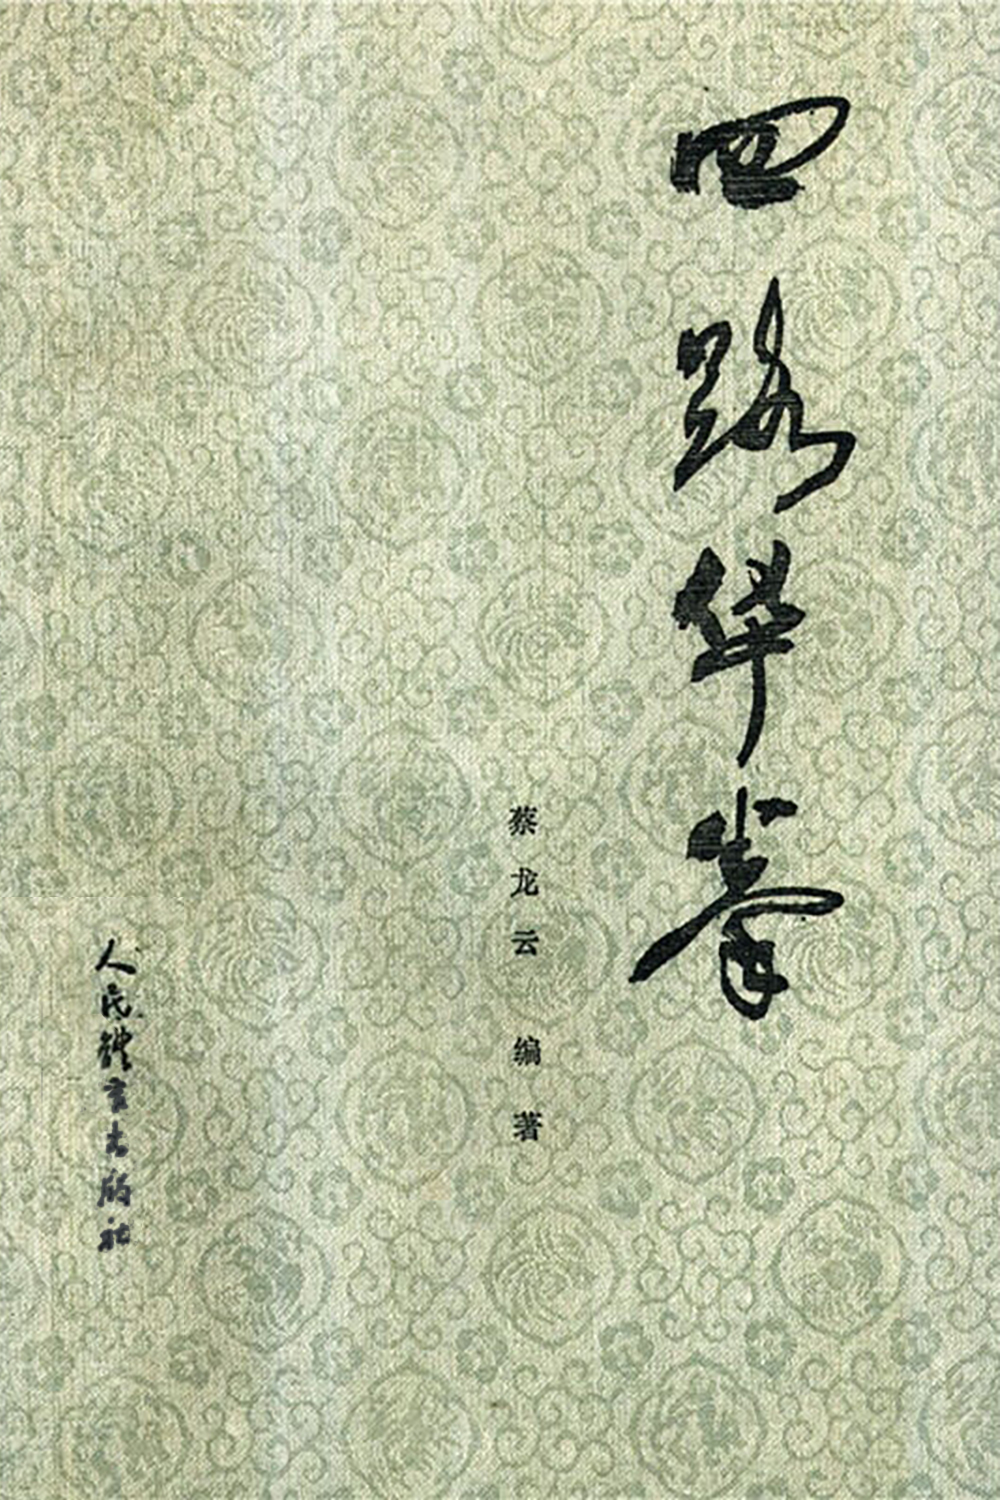 四路华拳
蔡龙云 编著
人民體育出版社